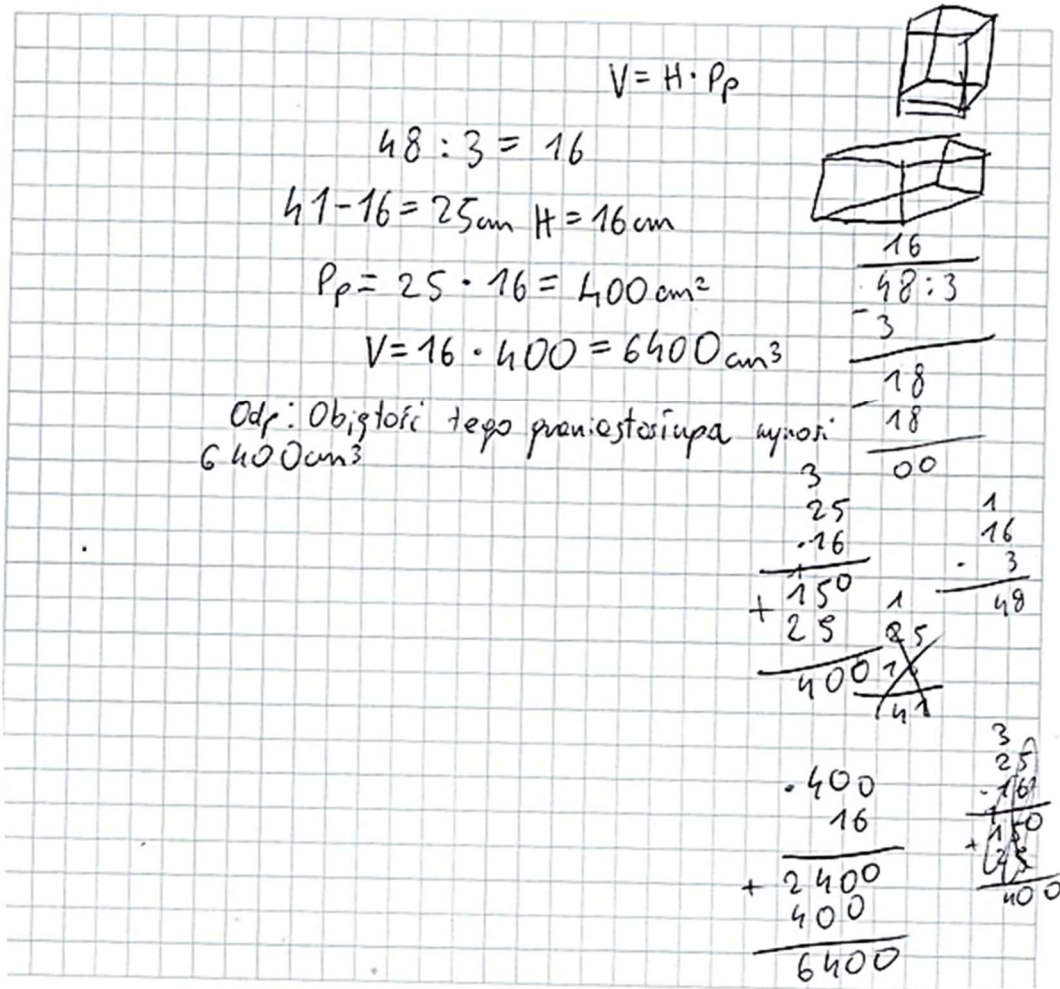 V = H · Pp
48 : 3 = 16
41 - 16 = 25 cm H = 16 cm
Pp = 25 · 16 = 400 cm²
V = 16 · 400 = 6400 cm³
Odp: Objętość tego graniastosłupa wynosi
6400 cm³
16
48:3
- 3
18
- 18
00
3
25
·16
1
150
+ 25
400
1
16
· 3
48
1
25
1
41
·400
16
2400
+ 400
6400
3
25
·16
1
150
+ 25
400